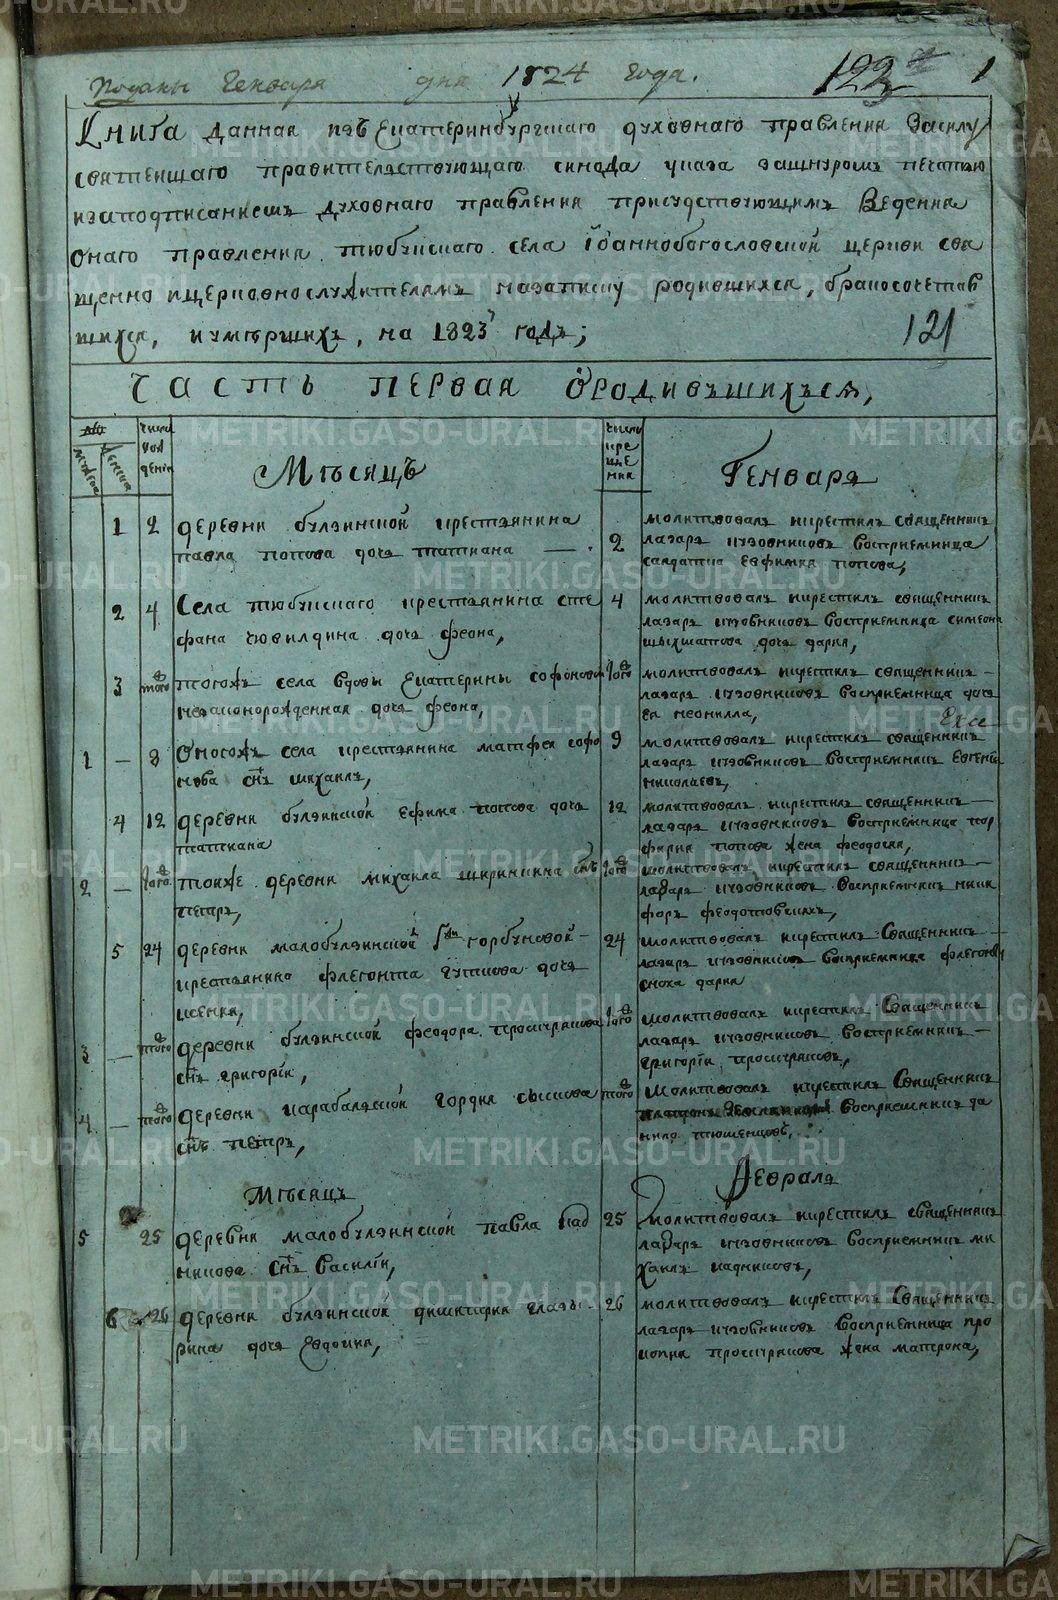 Поданы Генваря дня 1824 года.
123 1
Книга данная изъ Екатеринбургскаго духовнаго правления Засилу
святейшаго правителствующаго синода указа зашнуромъ печатью
изаподписаниемъ духовнаго правления присудствующимъ Ведения
Онаго правления тюбукскаго села Iоаннобогословской церкви свя
щенно ицерковнослужителямъ назаписку родившихся, бракосочетав
шихся, иумершихъ, на 1823 годъ;
121
ЧАСТЬ ПЕРВАЯ ОРОДИВЪШИХЪСЯ,
Число рож дения
Число кре ще ния
Месяцъ Генваря
1 2 деревни булзинской крестьянина
павла попова дочь татиана
2 молитвовалъ икрестилъ священникъ
лазарь восприемница
салдатка Евфимия попова,
2 4 Села тюбукскаго крестьянина сте
фана чювилдина дочь феона,
4 молитвовалъ икрестилъ священникъ
лазарь восприемница симеона
дочь дария,
3 того тогожъ села вдовы Екатерины софоновой
незаконорожденная дочь феона,
того молитвовалъ икрестилъ священникъ
лазарь восприемница дочь
Ея неонилла,
1 — 8 Оногожъ села крестьянина матфея софо
нова снъ михаилъ,
9 молитвовалъ икрестилъ священникъ
лазарь восприемникъ Евгений
николаевъ,
4 12 деревни булзинской Ефима попова дочь
татиана
12 молитвовалъ икрестилъ священникъ
лазарь восприемница пор
фирия попова жена феодосия,
2 — того тойже деревни михаила ширинкина снъ
петръ,
того молитвовалъ икрестилъ священникъ
лазарь восприемникъ ники
форъ
5 24 деревни малобулзинской горбуновой
крестьянина флегонта гуткова дочь
ксения,
24 молитвовалъ икрестилъ Священникъ
лазарь восприемница флегонта
сноха дария
3 — того деревни булзинской феодора проскрякова
снъ григорий,
того молитвовалъ икрестилъ Священникъ
лазарь восприемникъ
григорий проскряковъ,
4 — того деревни карабалской гордия сыскова
снъ петръ,
того Молитвовалъ икрестилъ Священникъ
восприемникъ да
нило тюменцовъ,
Месяцъ Февраля
5 25 деревни малобулзинской павла кад
никова снъ Василий,
25 молитвовалъ икрестилъ священникъ
лазарь восприемникъ ми
хаилъ кадниковъ,
6 26 деревни булзинской димитрия глазы
рина дочь Евдокия,
26 молитвовалъ икрестилъ Священникъ
лазарь восприемница про
копия проскрякова жена матрона,
METRIKI.GASO-URAL.RU